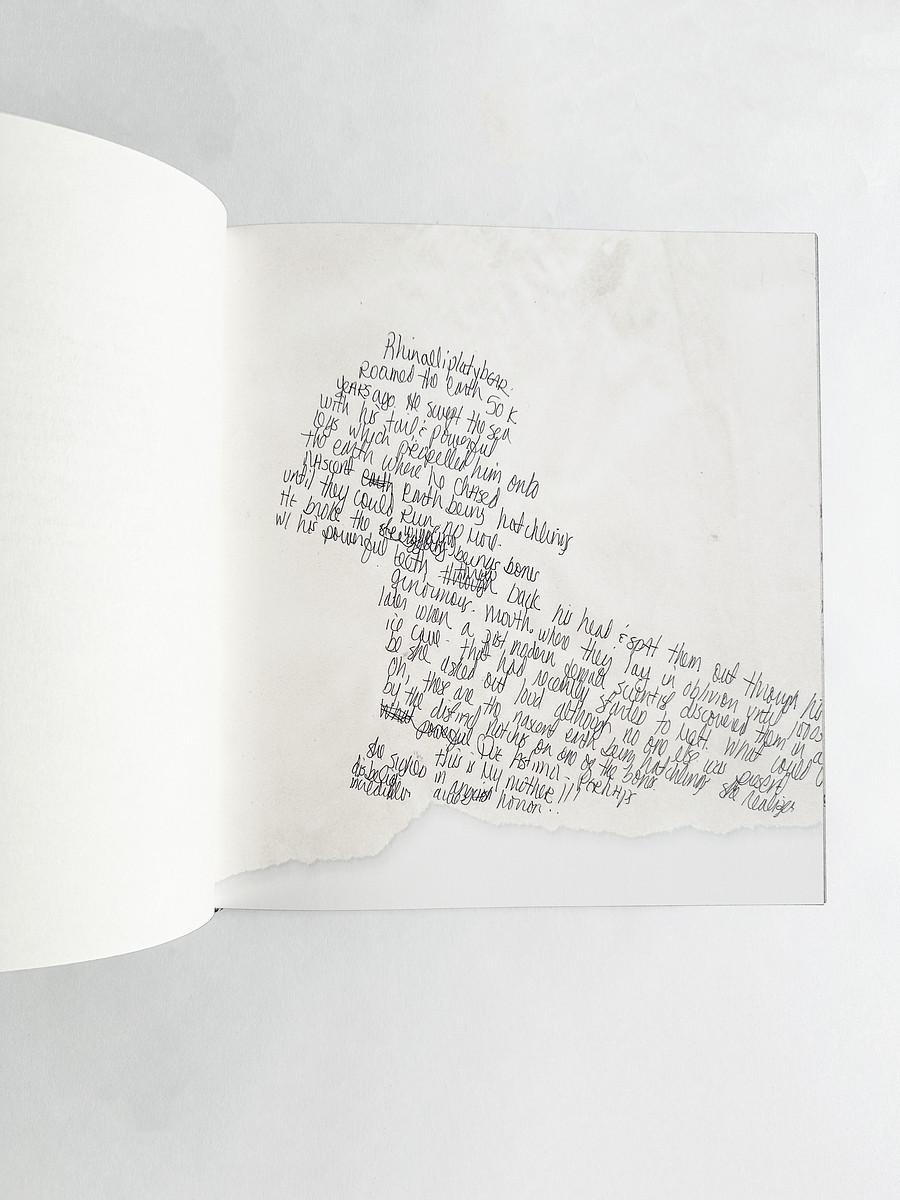 Rhinalliplatybear.
Roamed the earth 50 K
years ago. He swept the sea
with his tail & powerful
legs which propelled him onto
the earth where he chased
nascent earth Earth being hatchlings
until they could run no more.
He broke the beings bones
w/ his powerful teeth through back his head & spit them out through his
ginormous mouth, where they lay in oblivion until 1000s
later when a post modern female scientist discovered them in a
ice cave that had recently started to melt. What could
be she asked out loud although no one else was present
Oh, these are the nascent earth being hatchlings she realizes
by the distinct on one of the bones.
What Perhaps
this is my mother!!!
she signed in
incredible honor..